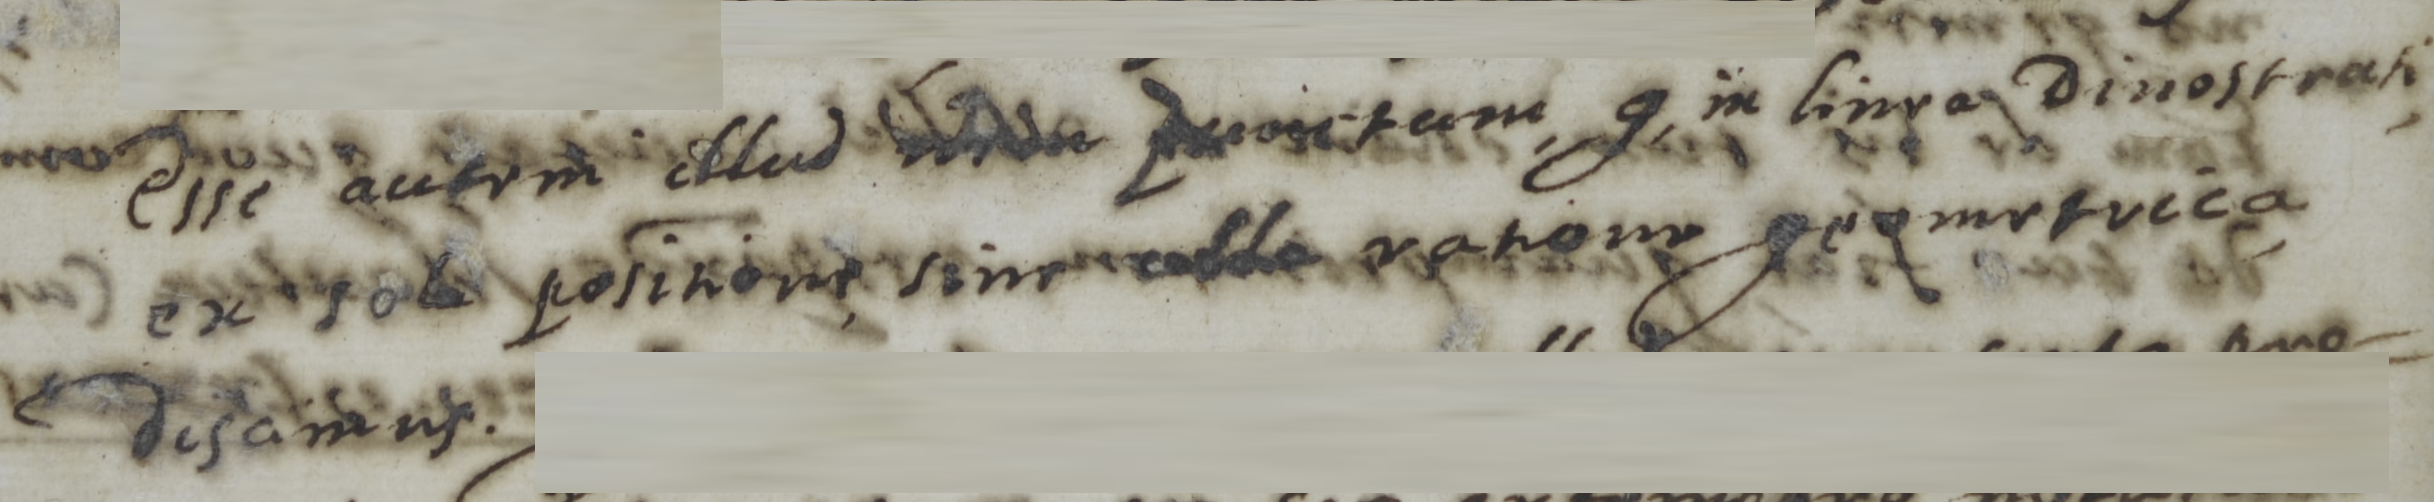 esse autem illud punctum, q, in linea Dinostrati,
ex sola positione, sine ratione geometrica,
discamus.